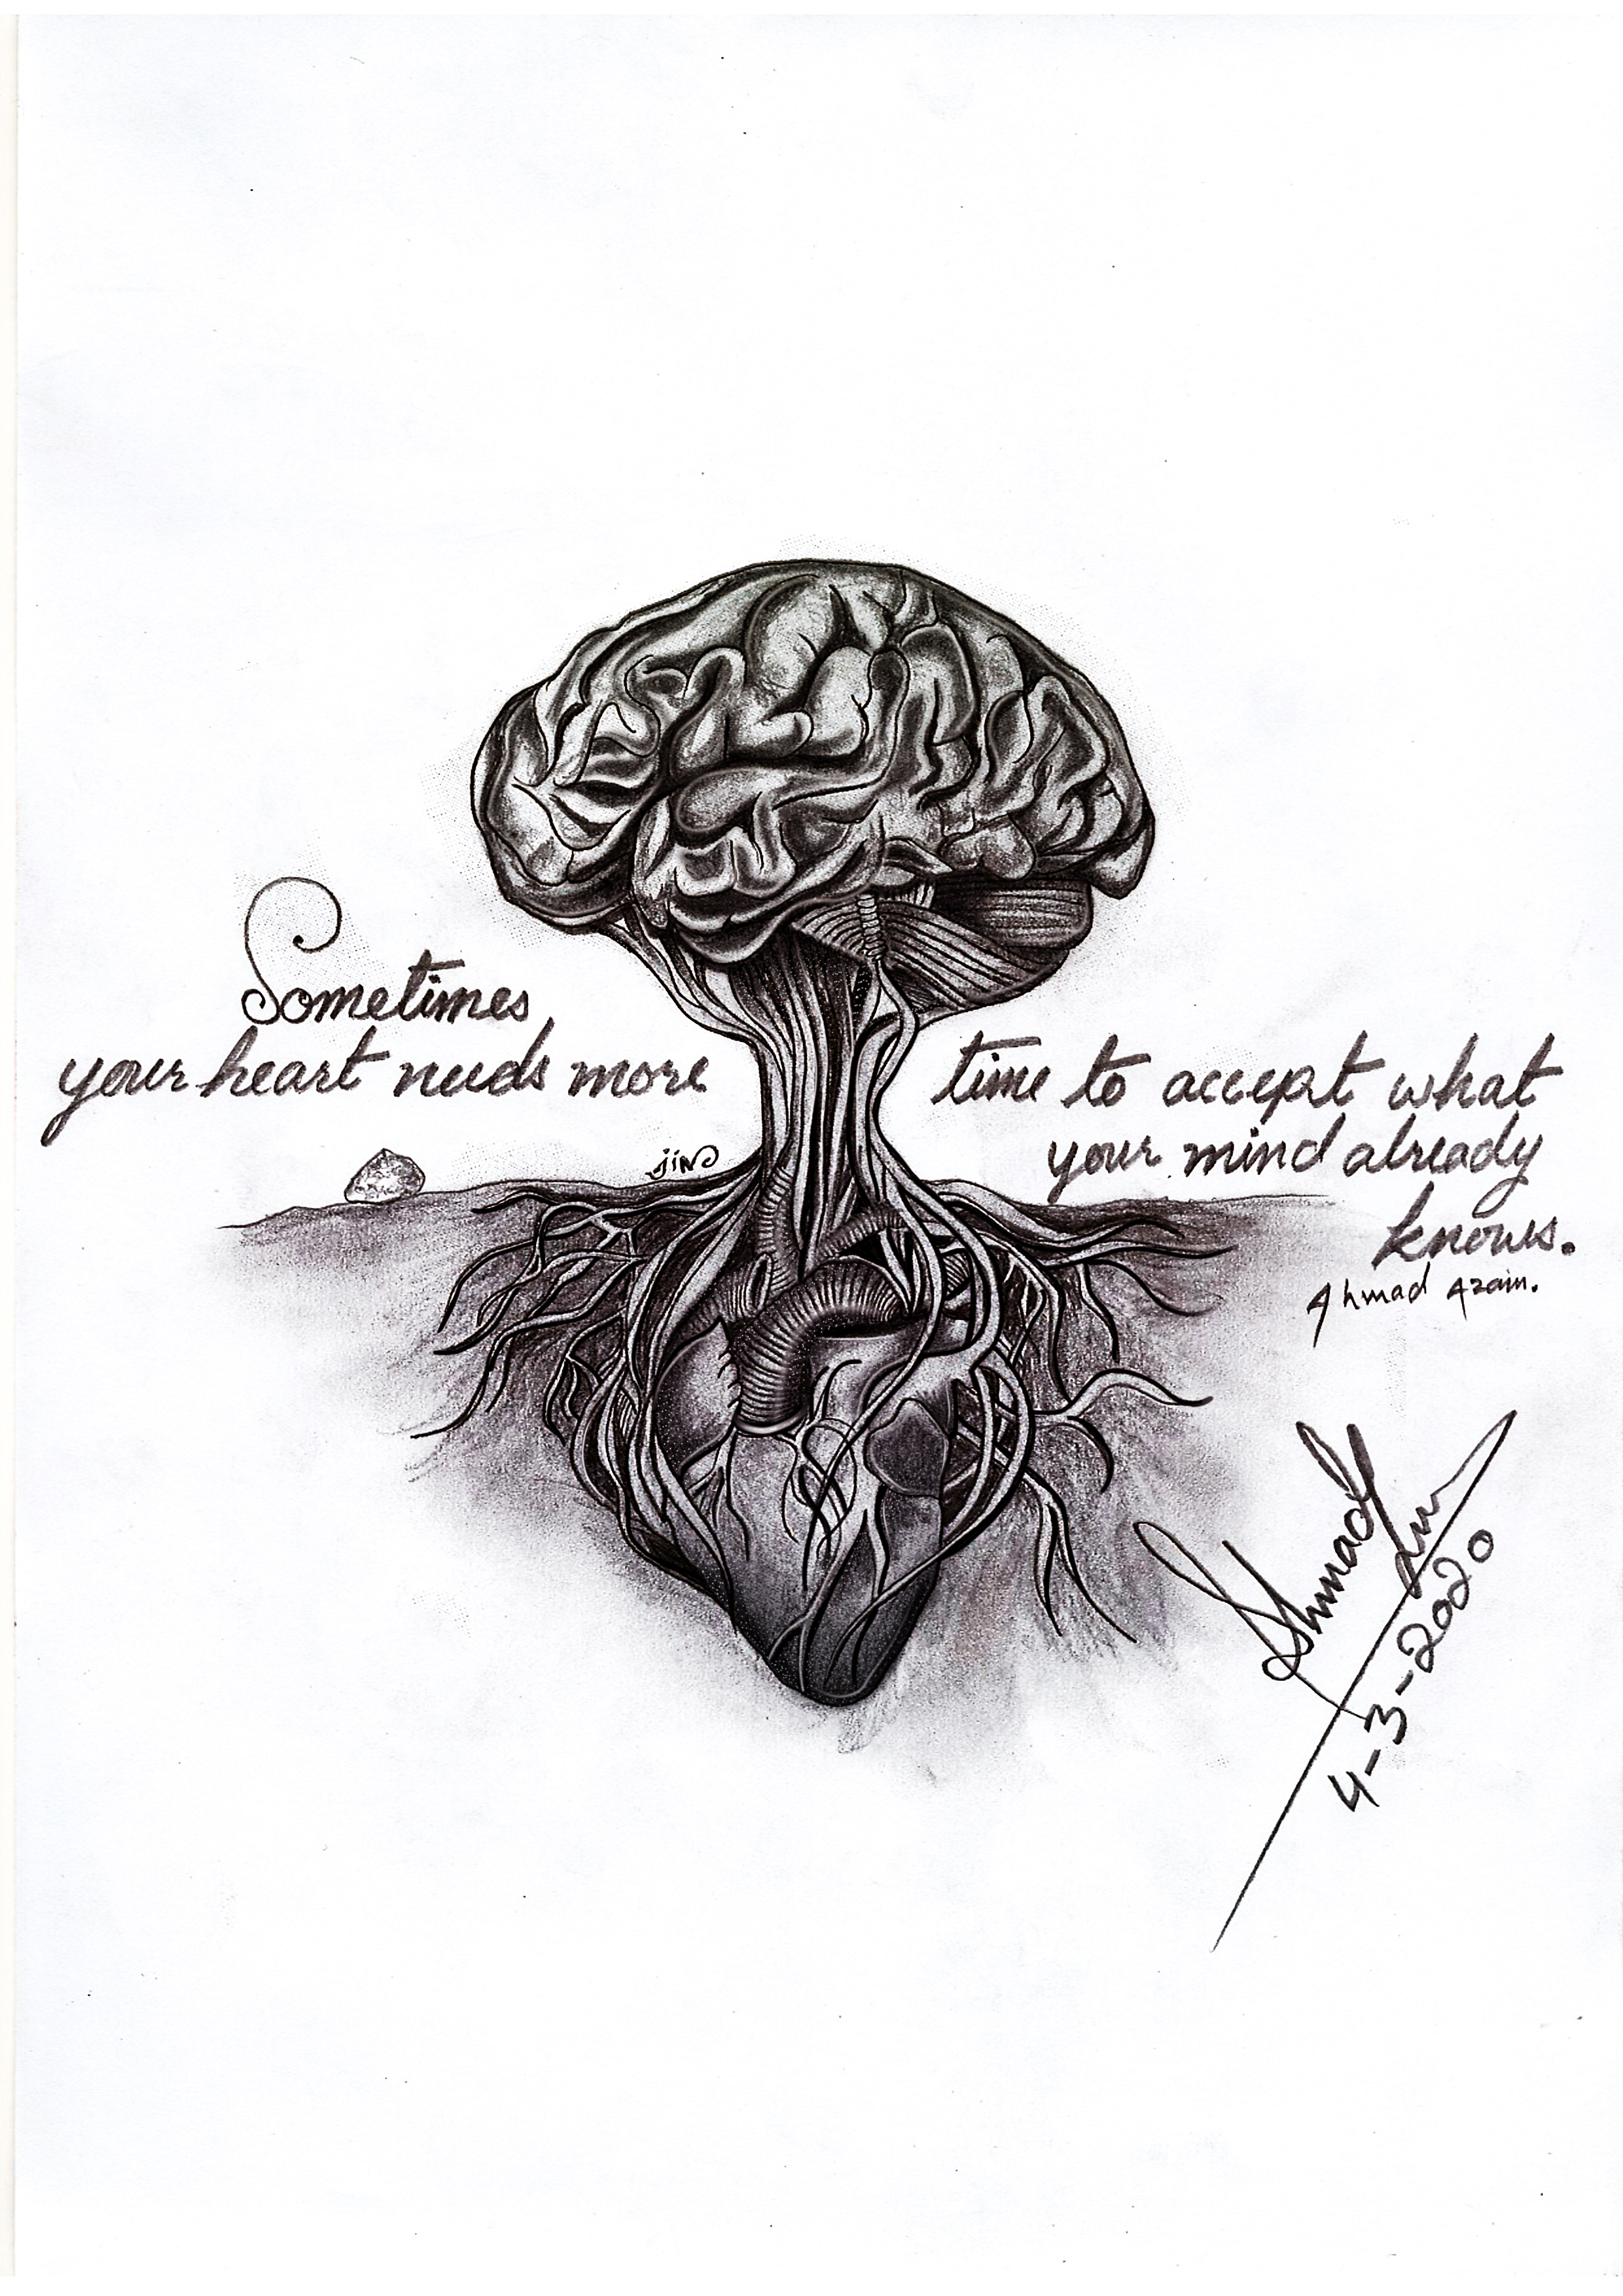 Sometimes
your heart needs more
time to accept what
your mind already
knows.
Ahmad Azaim.
jin
Ahmad
4-3-2020